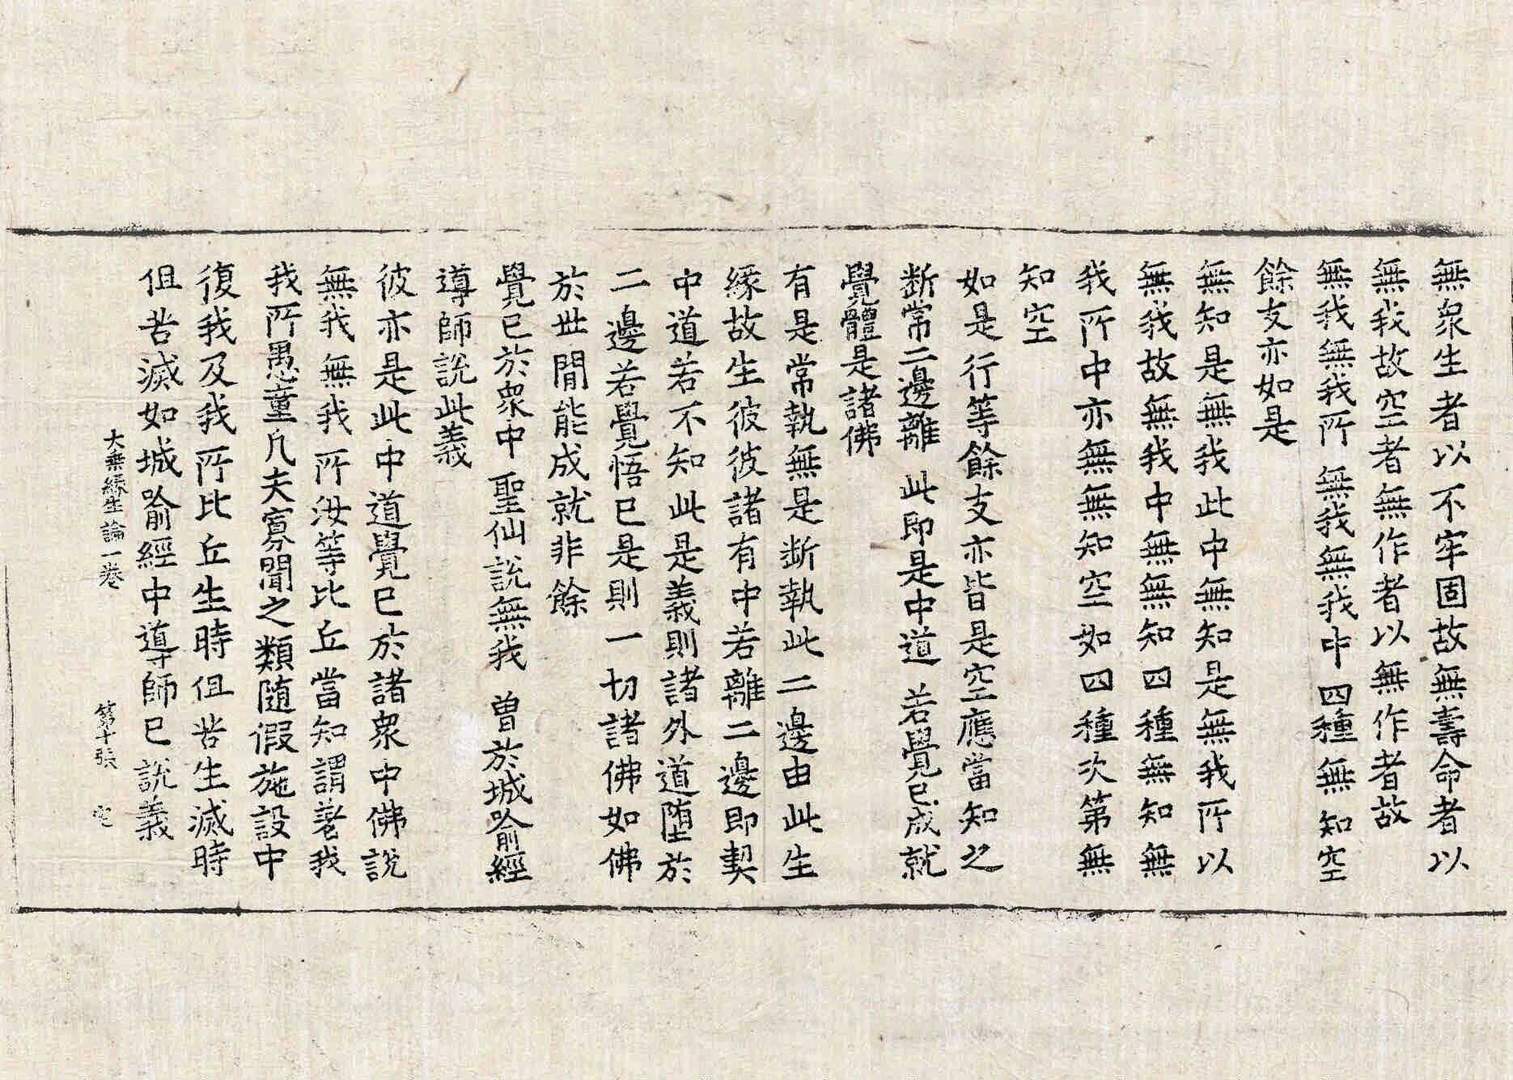 無衆生者以不牢固故無壽命者以
無我故空者無作者以無作者故
無我無我所 無我無我中 四種無知空
餘支亦如是
無知是無我此中無知是無我所以
無我故無我中無無知四種無知無
我所中亦無無知空如四種次第無
知空
如是行等餘支亦皆是空應當知之
断常二邊離 此即是中道 若覺已成就
覺體是諸佛
有是常執無是断執此二邊由此生
緣故生彼彼諸有中若離二邊即契
中道若不知此是義則諸外道堕於
二邊若覺悟已是則一切諸佛如佛
於世間能成就非餘
覺已於衆中 聖仙說無我 曽於城喻經
導師說此義
彼亦是此中道覺已於諸衆中佛說
無我無我所汝等比丘當知謂著我
我所愚童凡夫寡聞之類随假施設中
復我及我所比丘生時但苦生滅時
但苦滅如城喻經中導師已說義
大乗緣生論一卷 第十張